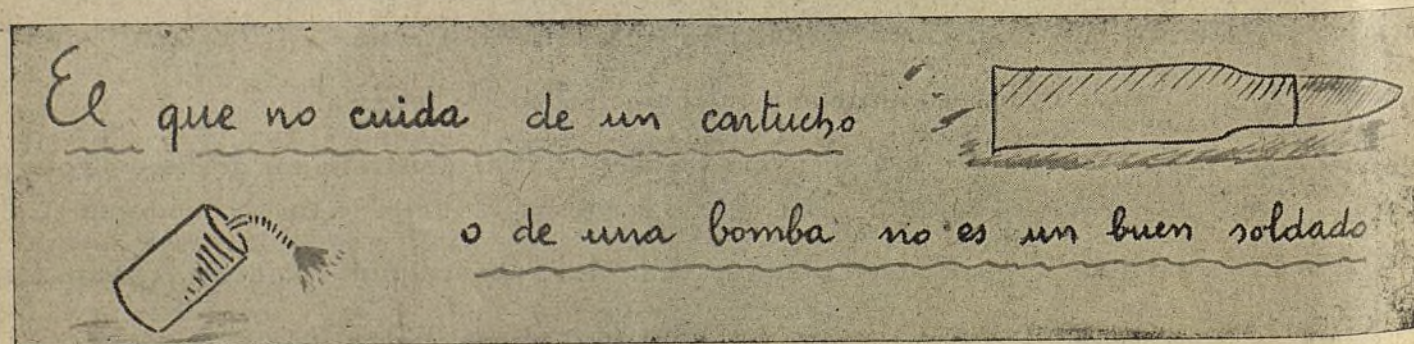 El que no cuida de un cartucho
o de una bomba no es un buen soldado